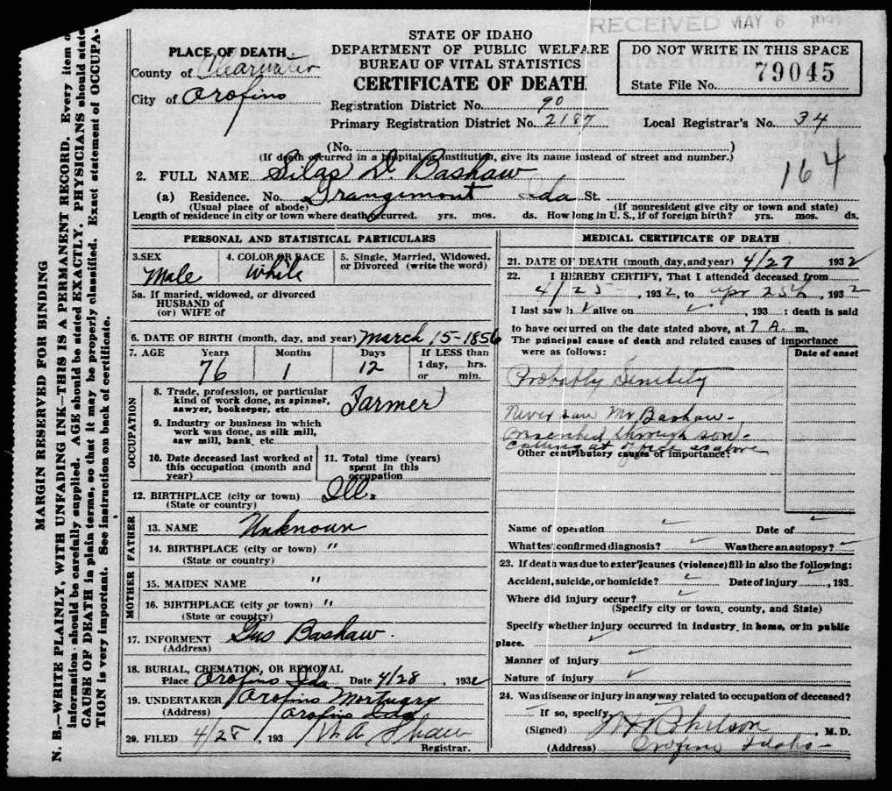 RECEIVED MAY 6
STATE OF IDAHO
DEPARTMENT OF PUBLIC WELFARE
BUREAU OF VITAL STATISTICS
CERTIFICATE OF DEATH
PLACE OF DEATH
County of Clearwater
City of Orofino
Registration District No. 90
Primary Registration District No. 2187
DO NOT WRITE IN THIS SPACE
State File No. 79045
Local Registrar's No. 34
(No. )
(If death occurred in a hospital or institution, give its name instead of street and number.)
164
2. FULL NAME Silas D. Bashaw
(a) Residence. No. Grangemont Ida St.
(Usual place of abode) (If nonresident give city or town and state)
Length of residence in city or town where death occurred. yrs. mos. ds. How long in U. S., if of foreign birth? yrs. mos. ds.
MARGIN RESERVED FOR BINDING
N. B.—WRITE PLAINLY, WITH UNFADING INK—THIS IS A PERMANENT RECORD. Every item of
information should be carefully supplied. AGE should be stated EXACTLY. PHYSICIANS should state
CAUSE OF DEATH in plain terms, so that it may be properly classified. Exact statement of OCCUPA-
TION is very important. See instruction on back of certificate.
PERSONAL AND STATISTICAL PARTICULARS
3. SEX Male
4. COLOR OR RACE White
5. Single, Married, Widowed, or Divorced (write the word)
5a. If married, widowed, or divorced
HUSBAND of
(or) WIFE of
6. DATE OF BIRTH (month, day, and year) March 15-1856
7. AGE Years Months Days If LESS than
76 1 12 1 day, hrs.
or min.
OCCUPATION
8. Trade, profession, or particular
kind of work done, as spinner,
sawyer, bookeeper, etc. Farmer
9. Industry or business in which
work was done, as silk mill,
saw mill, bank, etc.
10. Date deceased last worked at
this occupation (month and
year)
11. Total time (years)
spent in this
occupation
12. BIRTHPLACE (city or town) Ill.
(State or country)
FATHER
13. NAME Unknown
14. BIRTHPLACE (city or town) "
(State or country)
MOTHER
15. MAIDEN NAME "
16. BIRTHPLACE (city or town) "
(State or country)
17. INFORMENT Gus Bashaw.
(Address)
18. BURIAL, CREMATION, OR REMOVAL
Place Orofino Ida Date 4/28, 1932
19. UNDERTAKER Orofino Mortuary
(Address) Orofino Ida
20. FILED 4/28, 193 Shaw
Registrar.
MEDICAL CERTIFICATE OF DEATH
21. DATE OF DEATH (month, day, and year) 4/27 1932
22. I HEREBY CERTIFY, That I attended deceased from
4/25, 1932, to Apr 25th, 1932
I last saw h alive on , 193 ; death is said
to have occurred on the date stated above, at 7 A. m.
The principal cause of death and related causes of importance
were as follows:
Date of onset
Probably Senility
Never saw Mr Bashaw-
through son
Other contributory causes of importance:
Name of operation Date of
What test confirmed diagnosis? Was there an autopsy?
23. If death was due to external causes (violence) fill in also the following:
Accident, suicide, or homicide? Date of injury , 193
Where did injury occur?
(Specify city or town, county, and State)
Specify whether injury occurred in industry, in home, or in public
place.
Manner of injury
Nature of injury
24. Was disease or injury in any way related to occupation of deceased?
If so, specify
(Signed) M. D.
(Address) Orofino Idaho